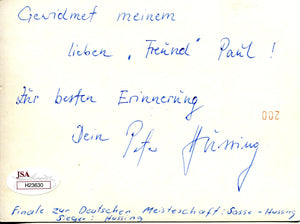 Gewidmet meinem
lieben "Freund" Paul!
Zur besten Erinnerung
Dein Peter Hussing
200
JSA
H23630
Finale zur Deutschen Meisterschaft: Sasse - Hussing
Sieger: Hussing